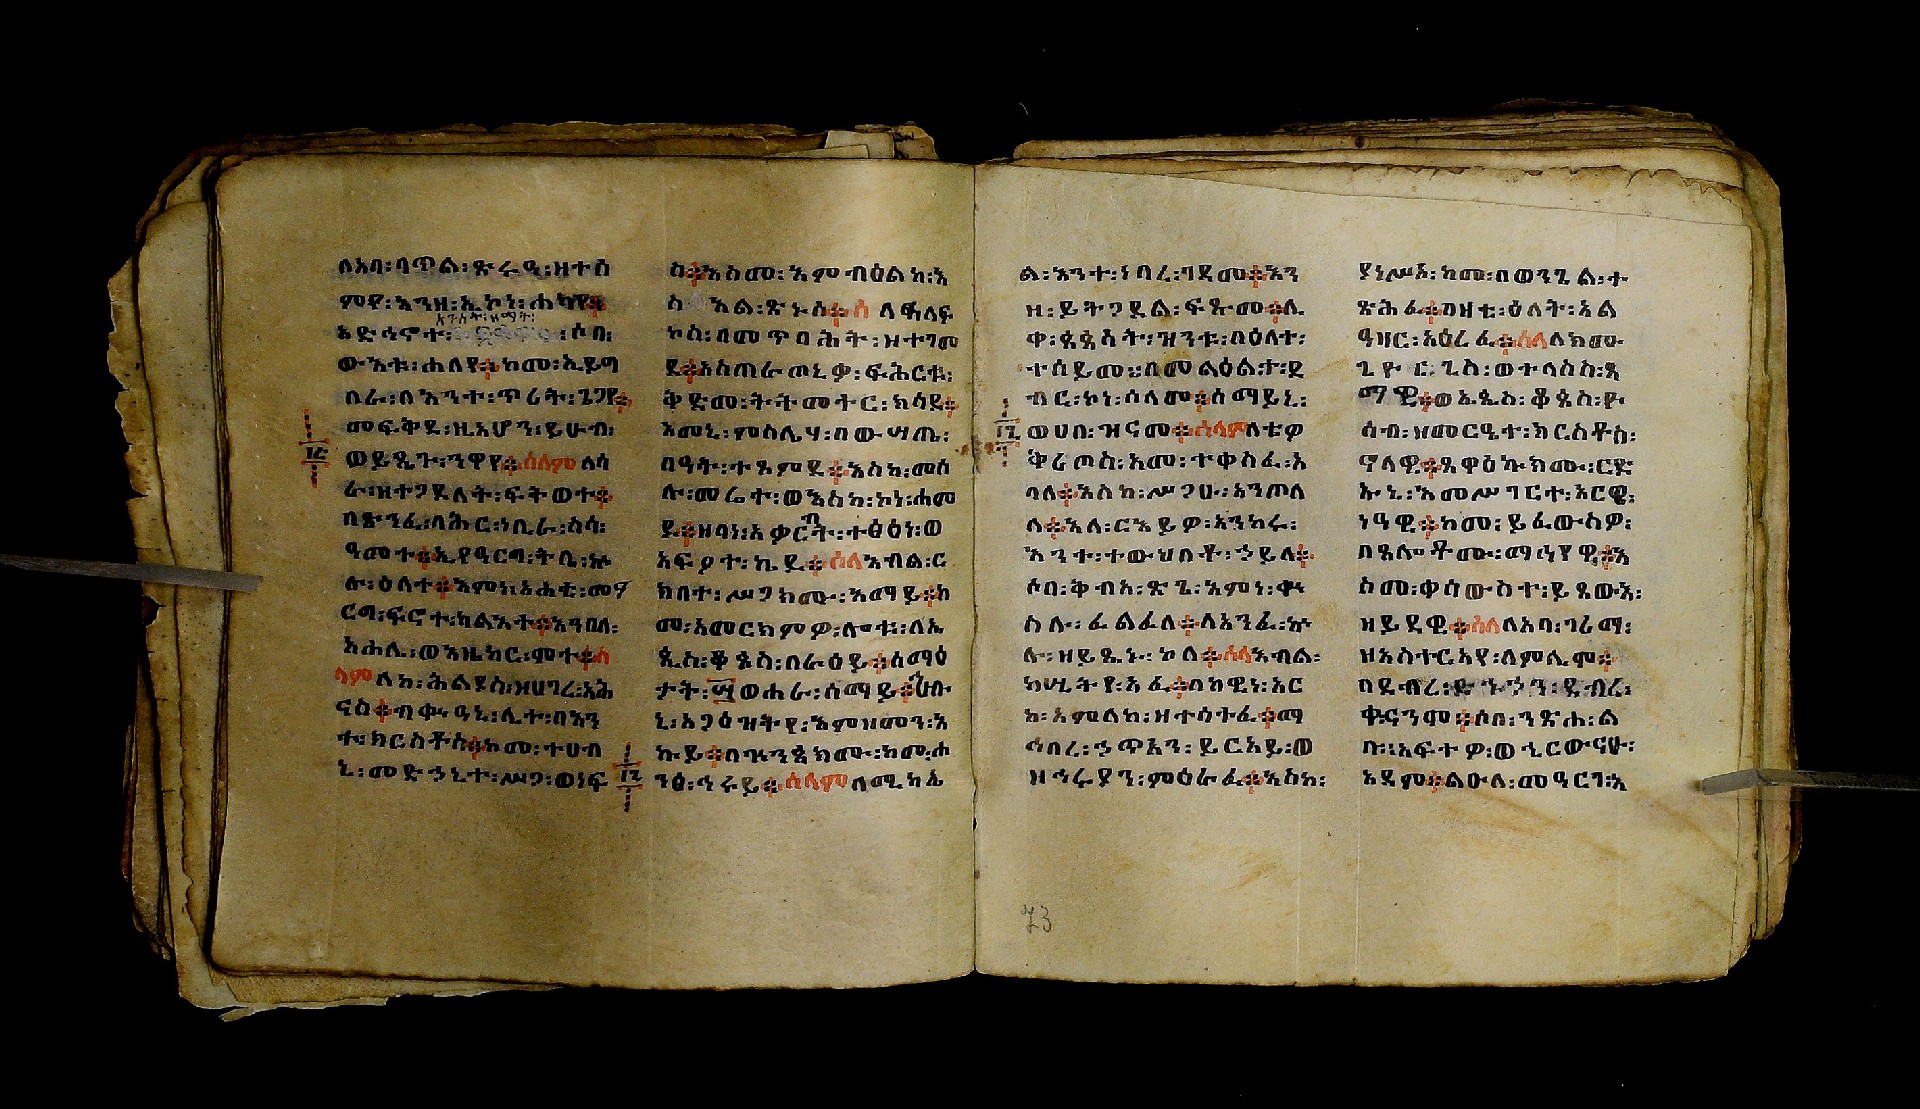 ለአባ፡ባጥል፡ጽሩዒ፡ዘተሰ
ምየ፡እንዘ፡ኢኮነ፡ሐካየ፨
አንስት፡ዘማት፡
ሶበ፡
ውእቱ፡ሐለየ፨ከመ፡ኢይግ
በራ፡በእንተ፡ጥሪት፡ጌጋየ፨
መፍቅደ፡ዚአሆን፡ይሁብ፡
ወይጼጉ፡ንዋየ፨ሰላም፡ለሳ
ራ፡ዘተጋደለት፡ፍትወተ፨
በጽንፈ፡ባሕር፡ነቢራ፡ስሳ፡
ዓመተ፨ኢየዓርግ፡ትቢ፡ኵ
ሉ፡ዕለተ፨እምነ፡አሐቲ፡መዓ
ርግ፡ፍኖተ፡ከልእተ፨እንበለ፡
አሐሊ፡ወእዜከር፡ሞተ፨ሰ
ላም፡ለከ፡ሕልያስ፡ዘሀገረ፡አሕ
ናስ፨ብቍዓኒ፡ሊተ፡በእን
ተ፡ክርስቶስ፨ከመ፡ተሀብ
ኒ፡መድኀኒተ፡ሥጋ፡ወነፍ
ስ፨እስመ፡እምብዕልከ፡እ
ስእል፡ጽኑስ፨ሰ
ኮስ፡በመጥባሕት፡ዘተገመ
ደ፨አስጠራጦኒቃ፡ፍሕርቱ፡
ቅድመ፡ትትመተር፡ክሳደ፨
አመኒ፡ምስሌሃ፡በውሣጤ፡
በዓት፡ተጸምደ፨እስከ፡መሰ
ሉ፡መሬተ፡ወእስከ፡ኮነ፡ሐመ
ደ፨ዘባነ፡አቃርብት፡ተፅዕነ፡ወ
አፍዖተ፡ኬደ፨ሰላ፡እብል፡ር
ክበተ፡ሥጋክሙ፡እማይ፨ከ
መ፡አመርክምዎ፡ሎቱ፡ለኤ
ጲስ፡ቆጶስ፡በራዕይ፨ሰማዕ
ታት፡፵ወሐራ፡ሰማይ፨ሀቡ
ኒ፡አጋዕዝትየ፡እምዘመን፡እ
ኩይ፨በዝንጼክሙ፡ከመ፡ሐ
ንፅ፡ኅሩይ፨ሰላም፡ለሚካኤ
ል፡እንተ፡ነበረ፡ገደመ፨እን
ዘ፡ይትጋደል፡ፍጹመ፨ሊ
ቀ፡ጳጳሳት፡ዝንቱ፡በዕለተ፡
ተሰይመ፡፡በመልዕልተ፡ደ
ብር፡ኮነ፡ሰላመ፨ሰማይኒ፡
ወሀበ፡ዝናመ፨ሰላም፡ለቴዎ
ቅሪጦስ፡አመ፡ተቀስፈ፡አ
ባለ፨እስከ፡ሥጋሁ፡አንጦለ
ለ፨እለ፡ርእይዎ፡አንከሩ፡
እንተ፡ተውህበቶ፡ኃይለ፨
ሶበ፡ቅብአ፡ጽጌ፡እምነ፡ቍ
ስሉ፡ፈልፈለ፨ለእንፈ፡ኵ
ሉ፡ዘይጼኑ፡ኮለ፨ሰላ፡እብል፡
ከ፡አምላከ፡ዘተሳትፈ፨ማ
ኅበረ፡ኃጥአን፡ይርአይ፡ወ
ዘኅሩያን፡ምዕራፈ፨እስከ፡
ያነሥእ፡ከመ፡በወንጌል፡ተ
ጽሕፈ፨በዛቲ፡ዕለት፡አል
ዓዛር፡አዕረፈ፨ሰላ፡ለክሙ
ጊዮርጊስ፡ወተላስስ፡ጻ
ማዊ፨ወኤጲስ፡ቆጶስ፡ዮ
ሳብ፡ዘመርዔተ፡ክርስቶስ፡
ኖላዊ፨ጸዋዕኩክሙ፡ርድ
ኡኒ፡እመሥገርተ፡አርዌ፡
ነዓዊ፨ከመ፡ይፈውስዎ፡
በጸሎቶሙ፡ማኅየዊ፨እ
ስመ፡ቃሰውስተ፡ይጼውእ፡
ዘይደዊ፨ሰላ፡ለአባ፡ገሪማ፡
ዘአስተርአየ፡ለምሌሞ፨
በደብረ፡ድኁኃን፡ደብረ፡
ቍናንም፨ሶበ፡ንጽሐ፡ል
ቡ፡አፍተዎ፡ወኂርውናሁ፡
አደም፨ልዑለ፡መዓርገ፡እ